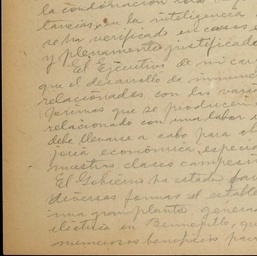 la condonación
en la inteligencia
se ha verificado en casos
y plenamente justificado
El Ejecutivo de mi car
que el desarrollo de
relacionadas con las
formas que se producen
relacionado con una labor
debe llevarse a cabo para
joría económica, especia
nuestras clases campesin
El Gobierno ha estado
diversas formas el estable
una gran planta genera
eléctrica en
numerosos beneficios para